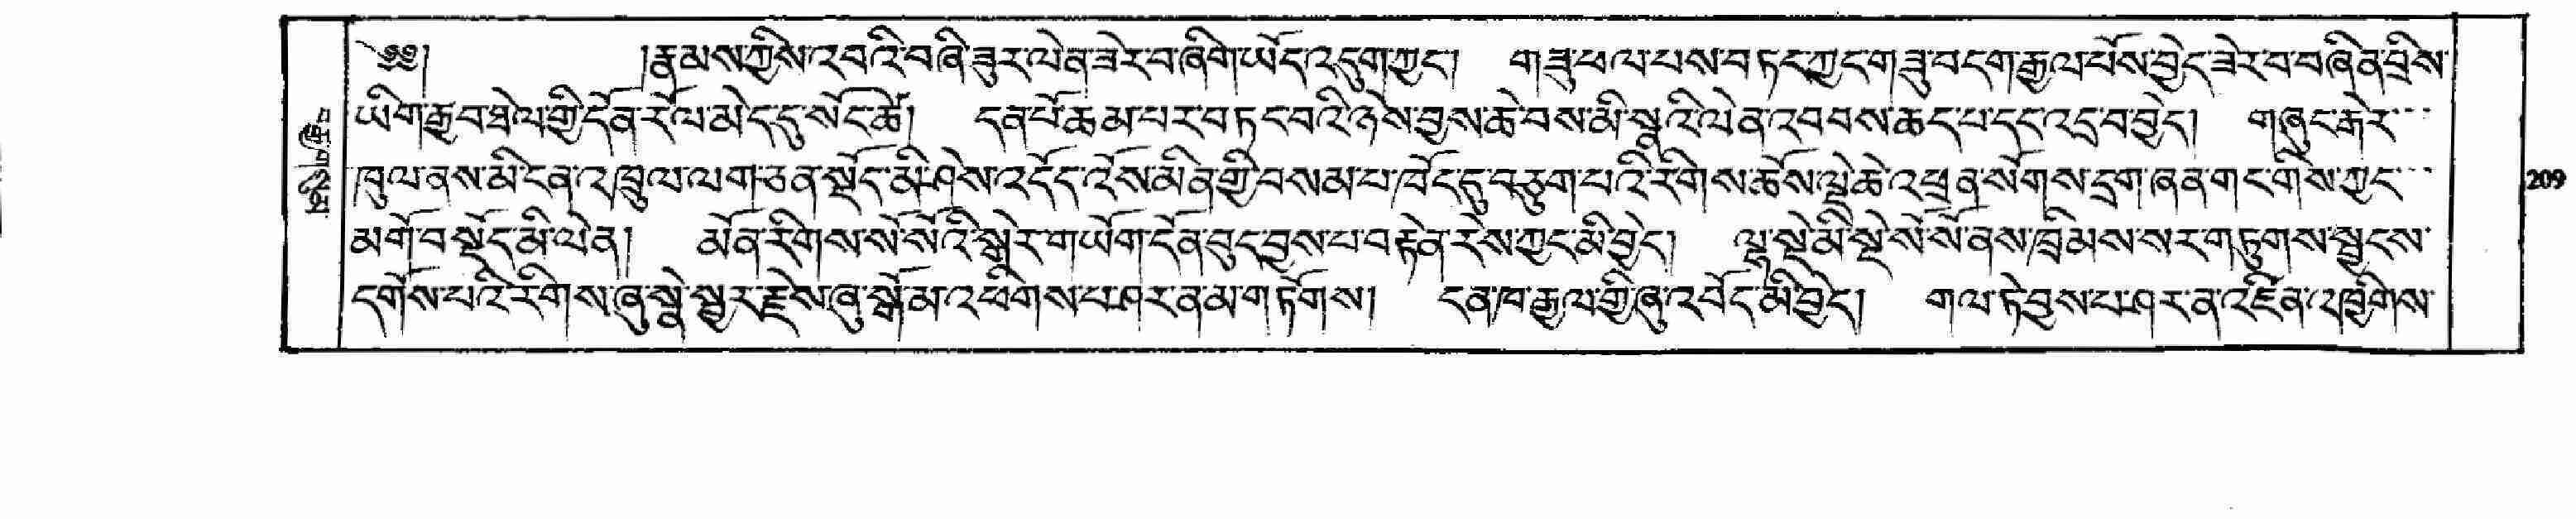 ༄༅། །རྣམས་ཀྱིས་འབའི་བཞི་ཟུར་ལེན་ཟེར་བ་ཞིག་ཡོད་འདུག་ཀྱང། གཟུ་ཕལ་པས་བཏང་ཀྱང་གཟུ་བདག་རྒྱལ་པོས་བྱེད་ཟེར་བ་བཞིན་བྲིས་
ཡིག་རྒྱབ་ཐྲེལ་གྱི་དོན་རོལ་མེད་དུ་སོང་ཚེ། དན་པོ་ཆམ་པར་བཏང་བའི་ཉེས་བྱས་ཆེ་བས་མི་སྣའི་ལེན་འབབས་ཆད་པ་དང་འདྲ་བ་བྱེད། གཞུང་རྒེར་
ཁུལ་ནས་མི་ངན་འཁྲུལ་ལག་ཅན་སྡོད་མི་ཤེས་འདོད་འོས་མིན་གྱི་བསམ་པ་ཁོད་དུ་བཅུག་པའི་རིགས་ཆོས་ལྡེ་ཆེ་འཕྲན་སོགས་དྲག་ཞན་གང་གིས་ཀྱང་
མགོ་བསྡོད་མི་ལེན། མོན་རིགས་སོ་སོའི་སྒེར་གཡོག་དོན་བུད་བྱས་པ་བརྟེན་རེས་ཀྱང་མི་བྱེད། ལྷ་སྡེ་མི་སྡེ་སོ་སོ་ནས་ཁྲིམས་སར་གཏུགས་སྦྱངས་
དགོས་པའི་རིགས་ཞུ་སྣེ་སྦྱར་རྗེས་ཞུ་སྒོམ་འཕིགས་པ་ཤར་ན་མ་གཏོགས། དན་ཁ་རྒྱལ་གྱི་ཞུ་འབོད་མི་བྱེད། གལ་ཏེ་བྱས་པ་ཤར་ན་འཛིན་འཁྱིགས་
209